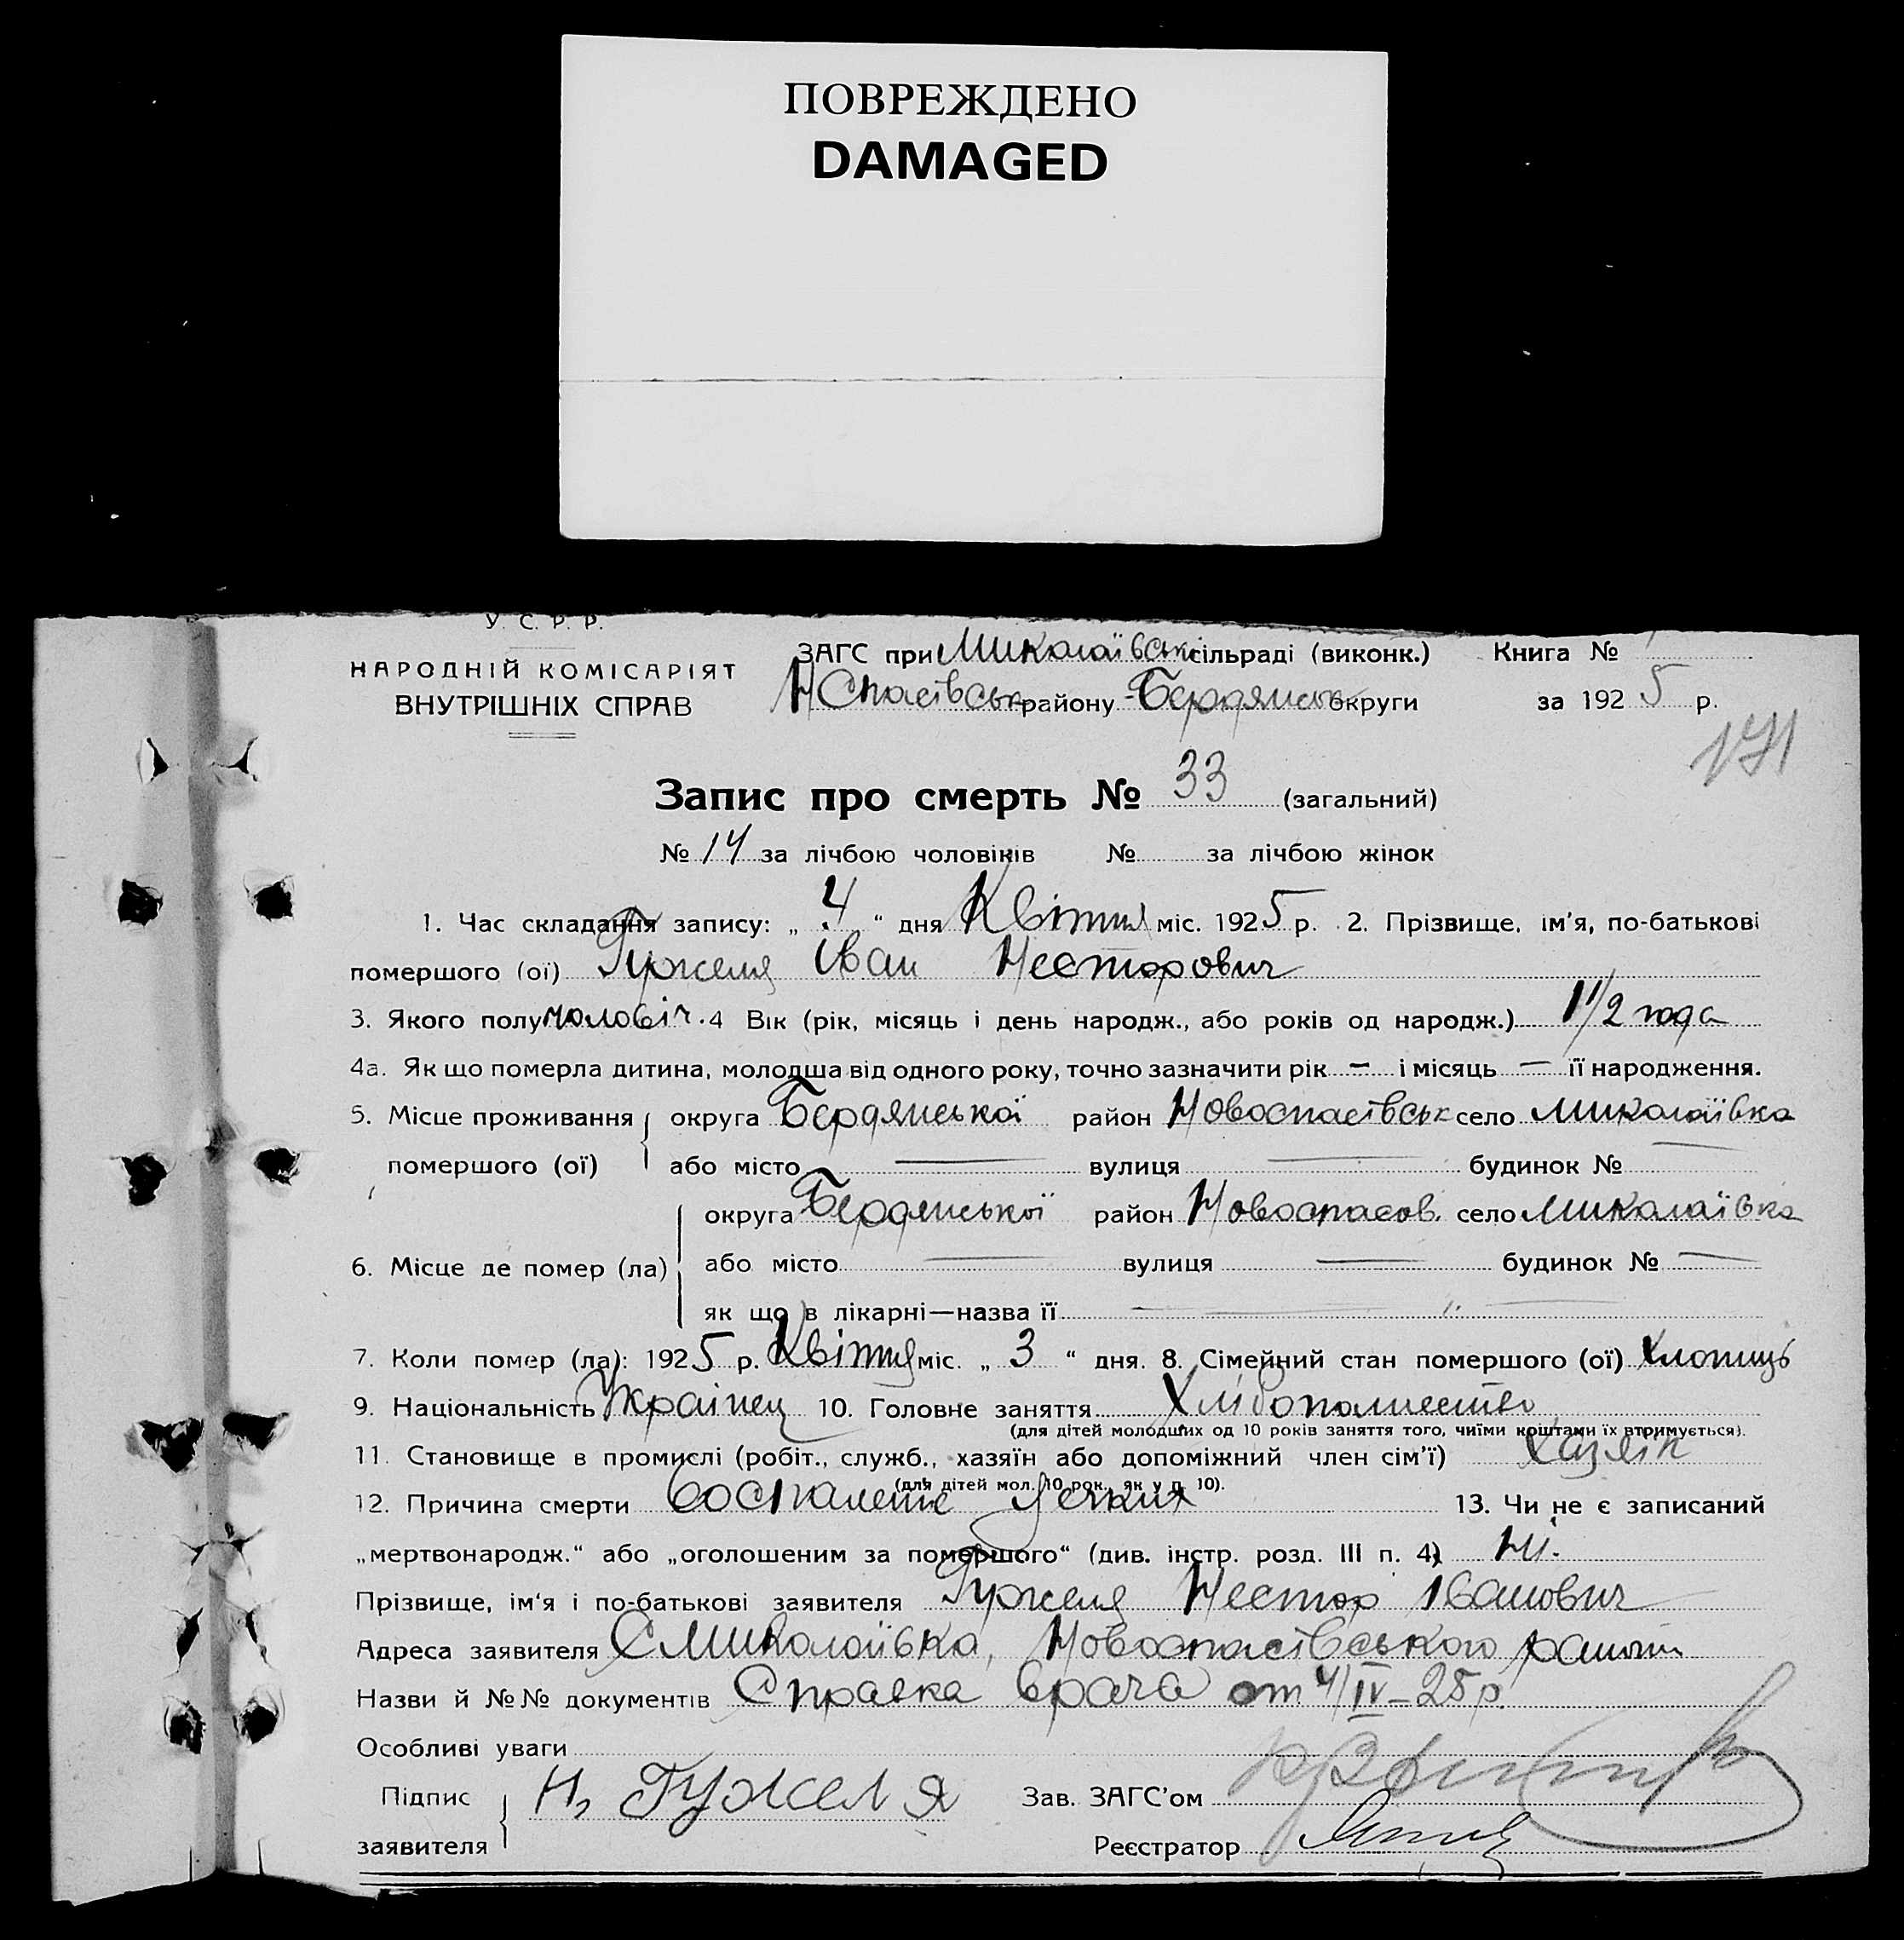 ПОВРЕЖДЕНО
DAMAGED
У. С. Р. Р.
НАРОДНІЙ КОМІСАРІЯТ
ВНУТРІШНІХ СПРАВ
ЗАГС при Миколаївськ сільраді (виконк.) Книга №
НСпасівськ району Бердянськ округи за 1925 р.
171
Запис про смерть № 33 (загальний)
№ 14 за лічбою чоловіків № за лічбою жінок
1. Час складання запису: „ 4 “ дня Квітня міс. 1925 р. 2. Прізвище, ім'я, по-батькові
помершого (ої) Гужеля Іван Несторович
3. Якого полу чоловіч. 4 Вік (рік, місяць і день народж., або років од народж.) 1 1/2 года
4а. Як що померла дитина, молодша від одного року, точно зазначити рік — і місяць — її народження.
5. Місце проживання округа Бердянської район Новоспасівськ село Миколаївка
помершого (ої) або місто — вулиця — будинок № —
округа Бердянської район Новоспасов. село Миколаївка
6. Місце де помер (ла) або місто — вулиця — будинок № —
як що в лікарні—назва її —
7. Коли помер (ла): 1925 р. Квітня міс. „ 3 “ дня. 8. Сімейний стан помершого (ої) хлопиць
9. Національність Украінец 10. Головне заняття Хлібопашество
(для дітей молодших од 10 років заняття того, чиїми коштами їх втримується).
11. Становище в промислі (робіт., служб., хазяїн або допоміжний член сім'ї) хазяїн
(для дітей мол. 10 рок. як у п. 10).
12. Причина смерти воспаление 13. Чи не є записаний
„мертвонародж.“ або „оголошеним за помершого“ (див. інстр. розд. III п. 4) Ні.
Прізвище, ім'я і по-батькові заявителя Гужеля Нестор Іванович
Адреса заявителя С Миколаївка, Новоспасівського району
Назви й №№ документів Справка врача от 4/IV–25 р.
Особливі уваги
Підпис заявителя Н. Гужеля Зав. ЗАГС'ом
Реєстратор